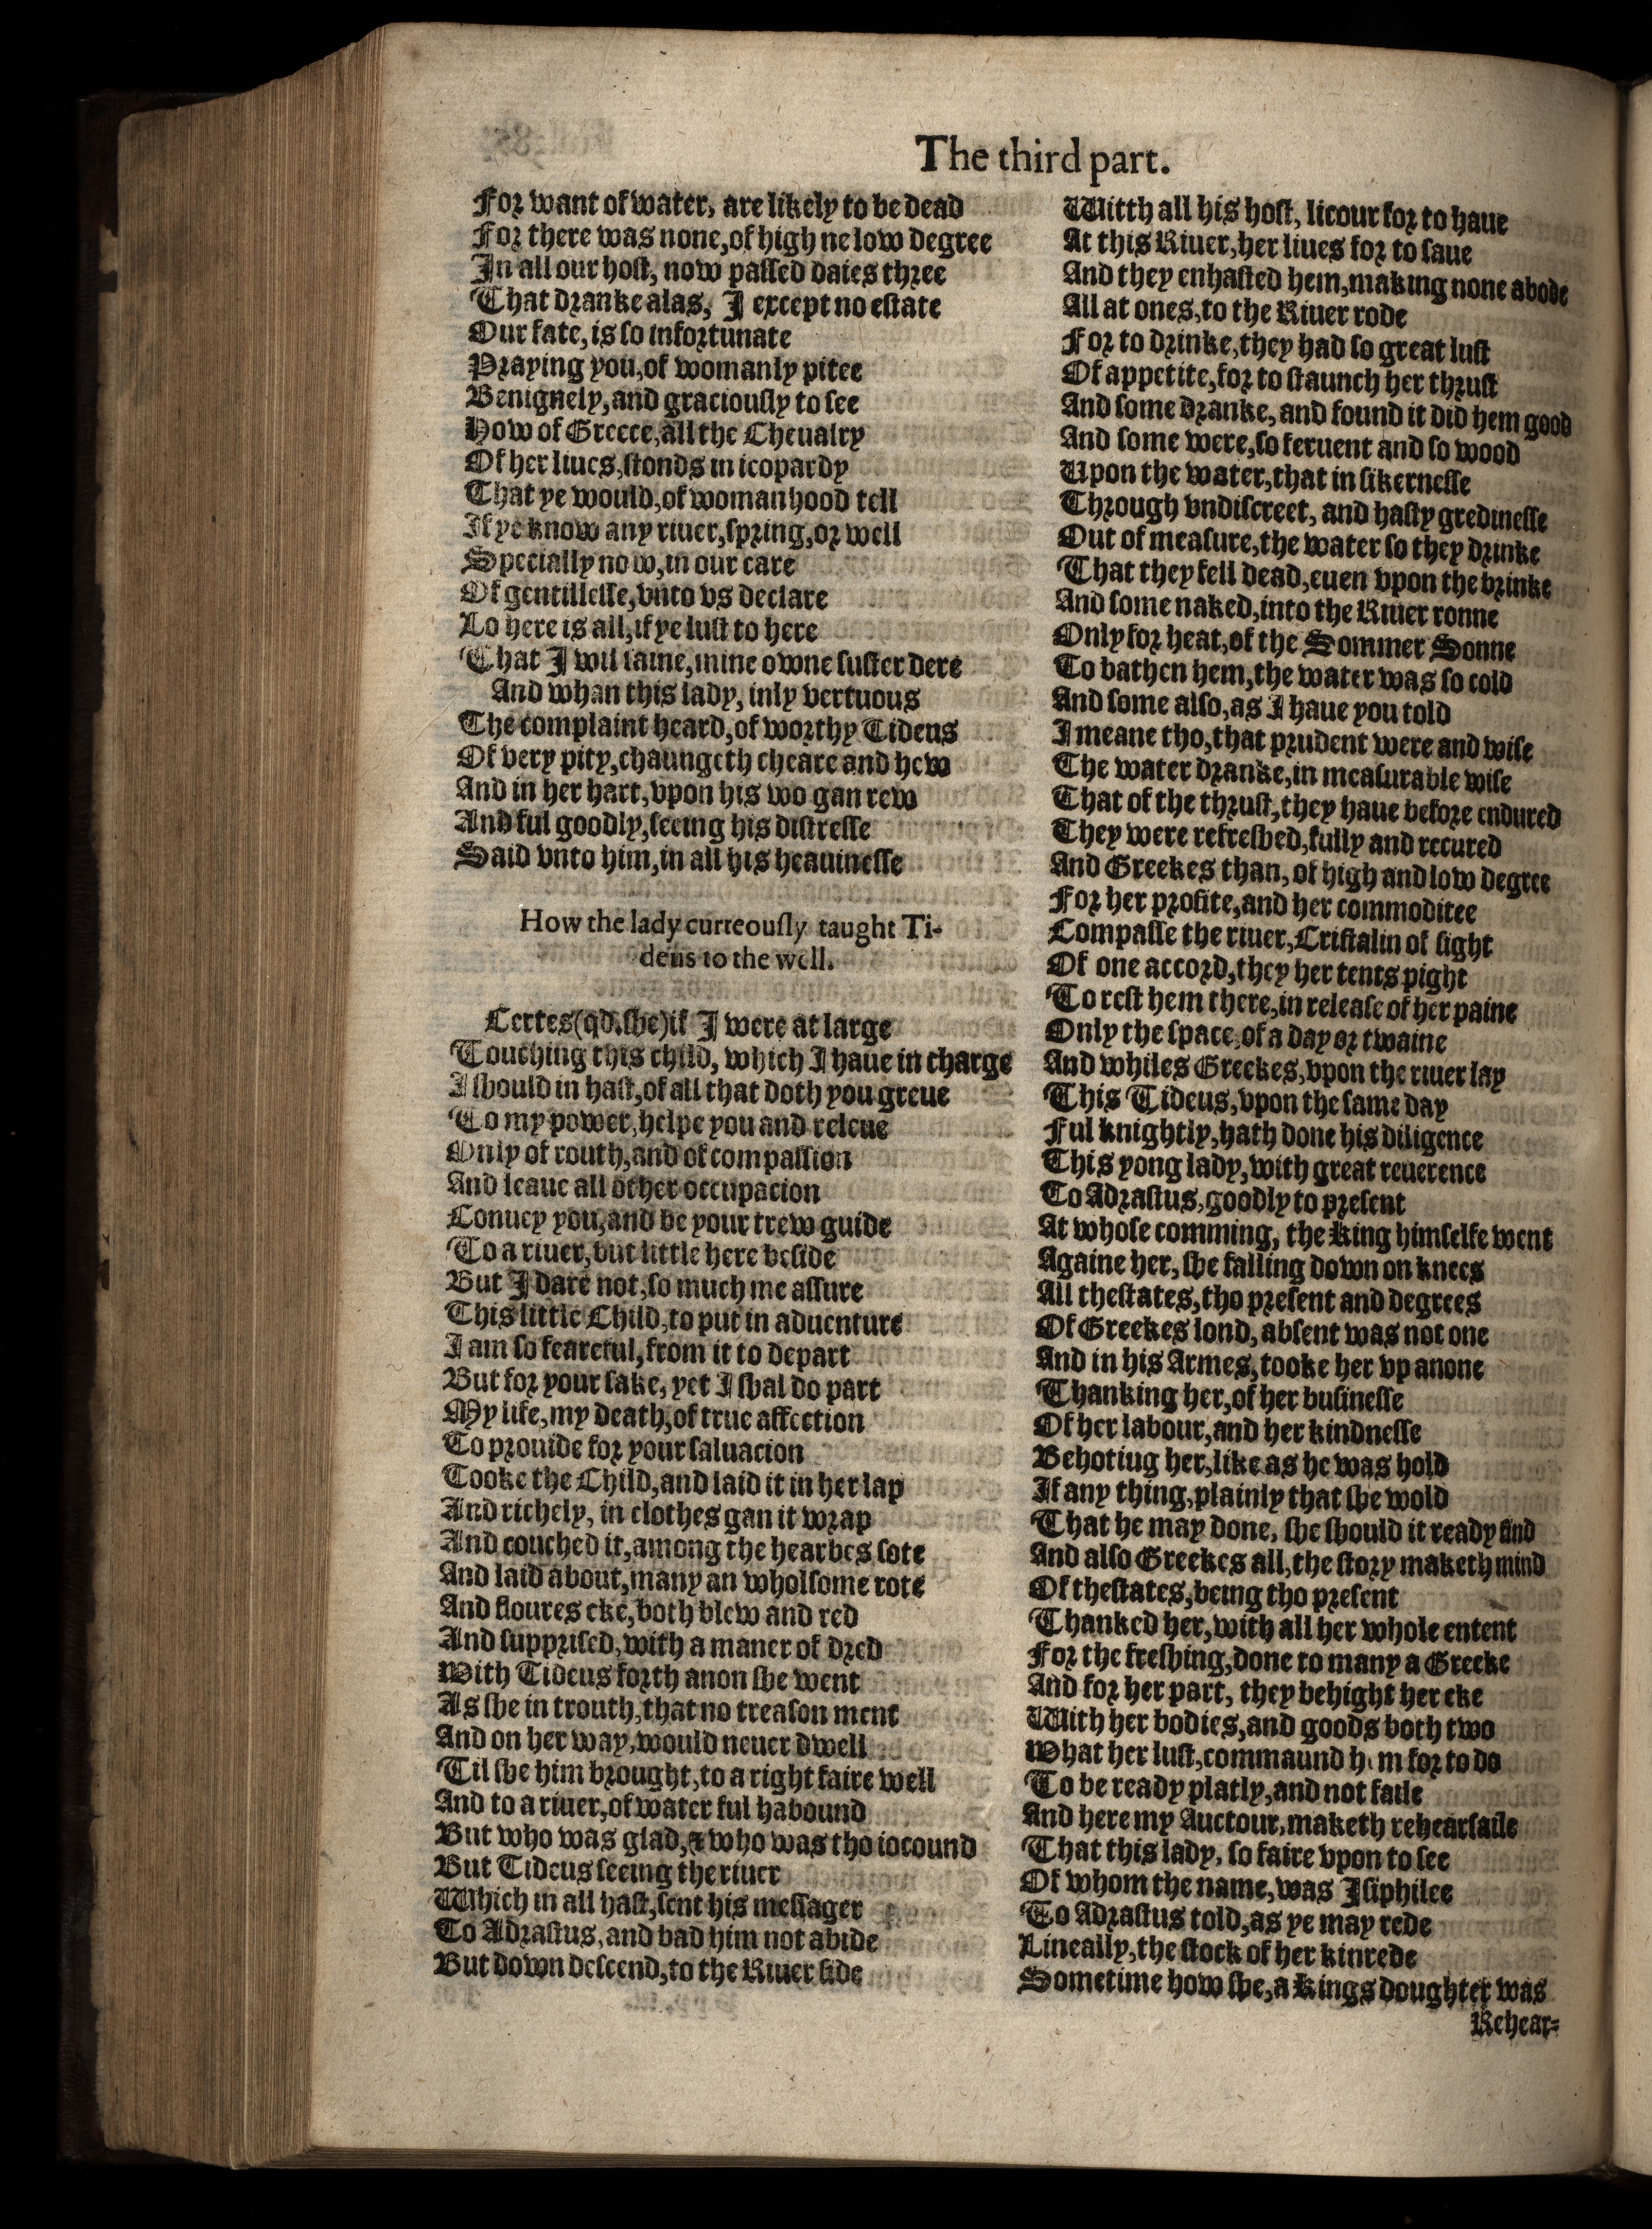 The third part.
For want of water, are likely to be dead
For there was none, of high ne low degree
In all our host, now passed daies three
That dranke alas, I except no estate
Our fate, is so infortunate
Praying you, of womanly pitee
Benignely, and graciously to see
How of Greece, all the Cheualry
Of her liues, stonds in ieopardy
That ye would, of womanhood tell
If ye know any riuer, spring, or well
Specially now, in our care
Of gentillesse, vnto vs declare
Lo here is all, if ye lust to here
That I wil saine, mine owne suster dere
And whan this lady, inly vertuous
The complaint heard, of worthy Tideus
Of very pity, chaungeth cheare and hew
And in her hart, vpon his wo gan rew
And ful goodly, seeing his distresse
Said vnto him, in all his heauinesse
How the lady curteously taught Ti-
deus to the well.
Certes (qd. she) if I were at large
Touching this child, which I haue in charge
I should in hast, of all that doth you greue
To my power, helpe you and releue
Only of routh, and of compassion
And leaue all other occupacion
Conuey you, and be your trew guide
To a riuer, but little here beside
But I dare not, so much me assure
This little Child, to put in aduenture
I am so feareful, from it to depart
But for your sake, yet I shal do part
My life, my death, of true affection
To prouide for your saluacion
Tooke the Child, and laid it in her lap
And richely, in clothes gan it wrap
And couched it, among the hearbes sote
And laid about, many an wholsome rote
And floures eke, both blew and red
And supprised, with a maner of dred
With Tideus forth anon she went
As she in trouth, that no treason ment
And on her way, would neuer dwell
Til she him brought, to a right faire well
And to a riuer, of water ful habound
But who was glad, & who was tho iocound
But Tideus seeing the riuer
Which in all hast, sent his messager
To Adrastus, and bad him not abide
But down descend, to the Riuer side
Witth all his host, licour for to haue
At this Riuer, her liues for to saue
And they enhasted hem, making none abode
All at ones, to the Riuer rode
For to drinke, they had so great lust
Of appetite, for to staunch her thrust
And some dranke, and found it did hem good
And some were, so feruent and so wood
Upon the water, that in sikernesse
Through vndiscreet, and hasty gredinesse
Out of measure, the water so they drinke
That they fell dead, euen vpon the brinke
And some naked, into the Riuer ronne
Only for heat, of the Sommer Sonne
To bathen hem, the water was so cold
And some also, as I haue you told
I meane tho, that prudent were and wise
The water dranke, in measurable wise
That of the thrust, they haue before endured
They were refreshed, fully and recured
And Greekes than, of high and low degree
For her profite, and her commoditee
Compasse the riuer, Cristalin of sight
Of one accord, they her tents pight
To rest hem there, in release of her paine
Only the space, of a day or twaine
And whiles Greekes, vpon the riuer lay
This Tideus, vpon the same day
Ful knightly, hath done his diligence
This yong lady, with great reuerence
To Adrastus, goodly to present
At whose comming, the King himselfe went
Againe her, she falling down on knees
All thestates, tho present and degrees
Of Greekes lond, absent was not one
And in his Armes, tooke her vp anone
Thanking her, of her businesse
Of her labour, and her kindnesse
Behotiug her, like as he was hold
If any thing, plainly that she wold
That he may done, she should it ready find
And also Greekes all, the story maketh mind
Of thestates, being tho present
Thanked her, with all her whole entent
For the freshing, done to many a Greeke
And for her part, they behight her eke
With her bodies, and goods both two
What her lust, commaund hem for to do
To be ready platly, and not faile
And here my Auctour, maketh rehearsaile
That this lady, so faire vpon to see
Of whom the name, was Isiphilee
To Adrastus told, as ye may rede
Lineally, the stock of her kinrede
Sometime how she, a Kings doughter was
Rehear-